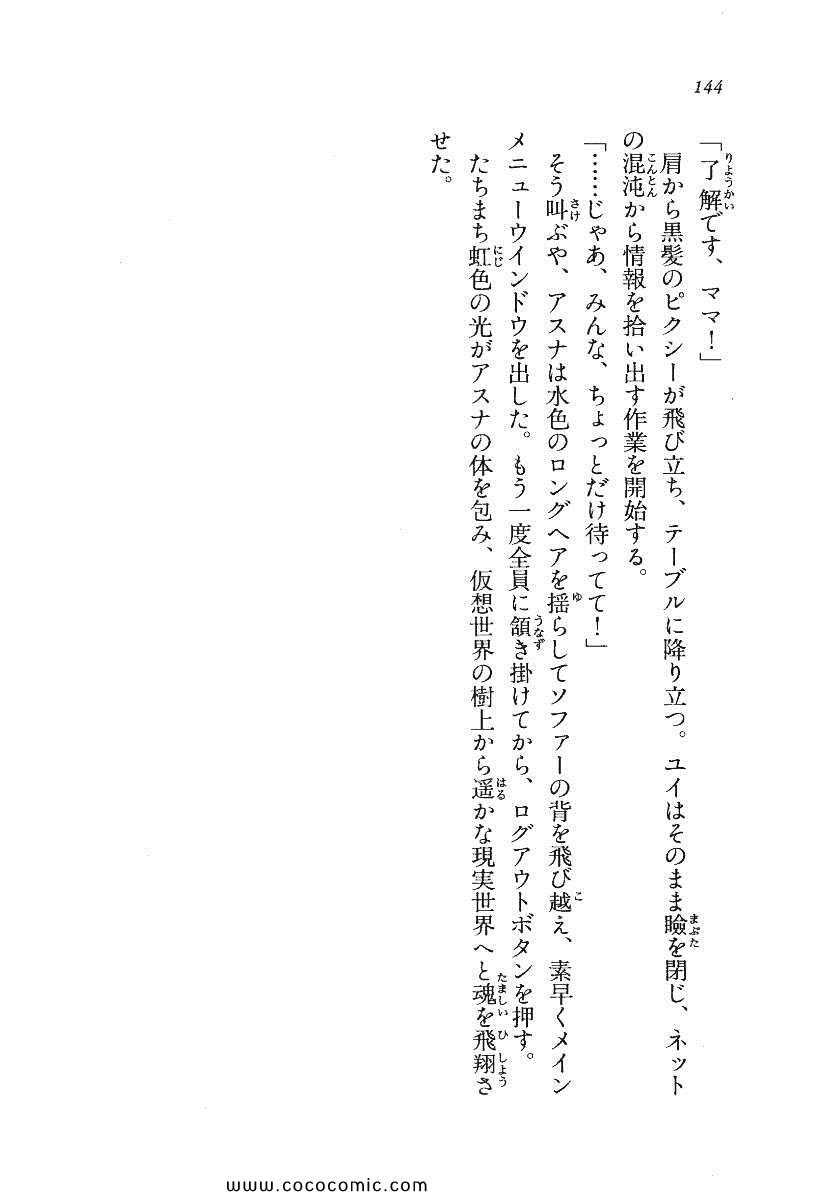 144
「了解です、ママ！」
肩から黒髪のピクシーが飛び立ち、テーブルに降り立つ。ユイはそのまま瞼を閉じ、ネット
の混沌から情報を拾い出す作業を開始する。
「……じゃあ、みんな、ちょっとだけ待ってて！」
そう叫ぶや、アスナは水色のロングヘアを揺らしてソファーの背を飛び越え、素早くメイン
メニューウインドウを出した。もう一度全員に頷き掛けてから、ログアウトボタンを押す。
たちまち虹色の光がアスナの体を包み、仮想世界の樹上から遥かな現実世界へと魂を飛翔さ
せた。
www.cococomic.com